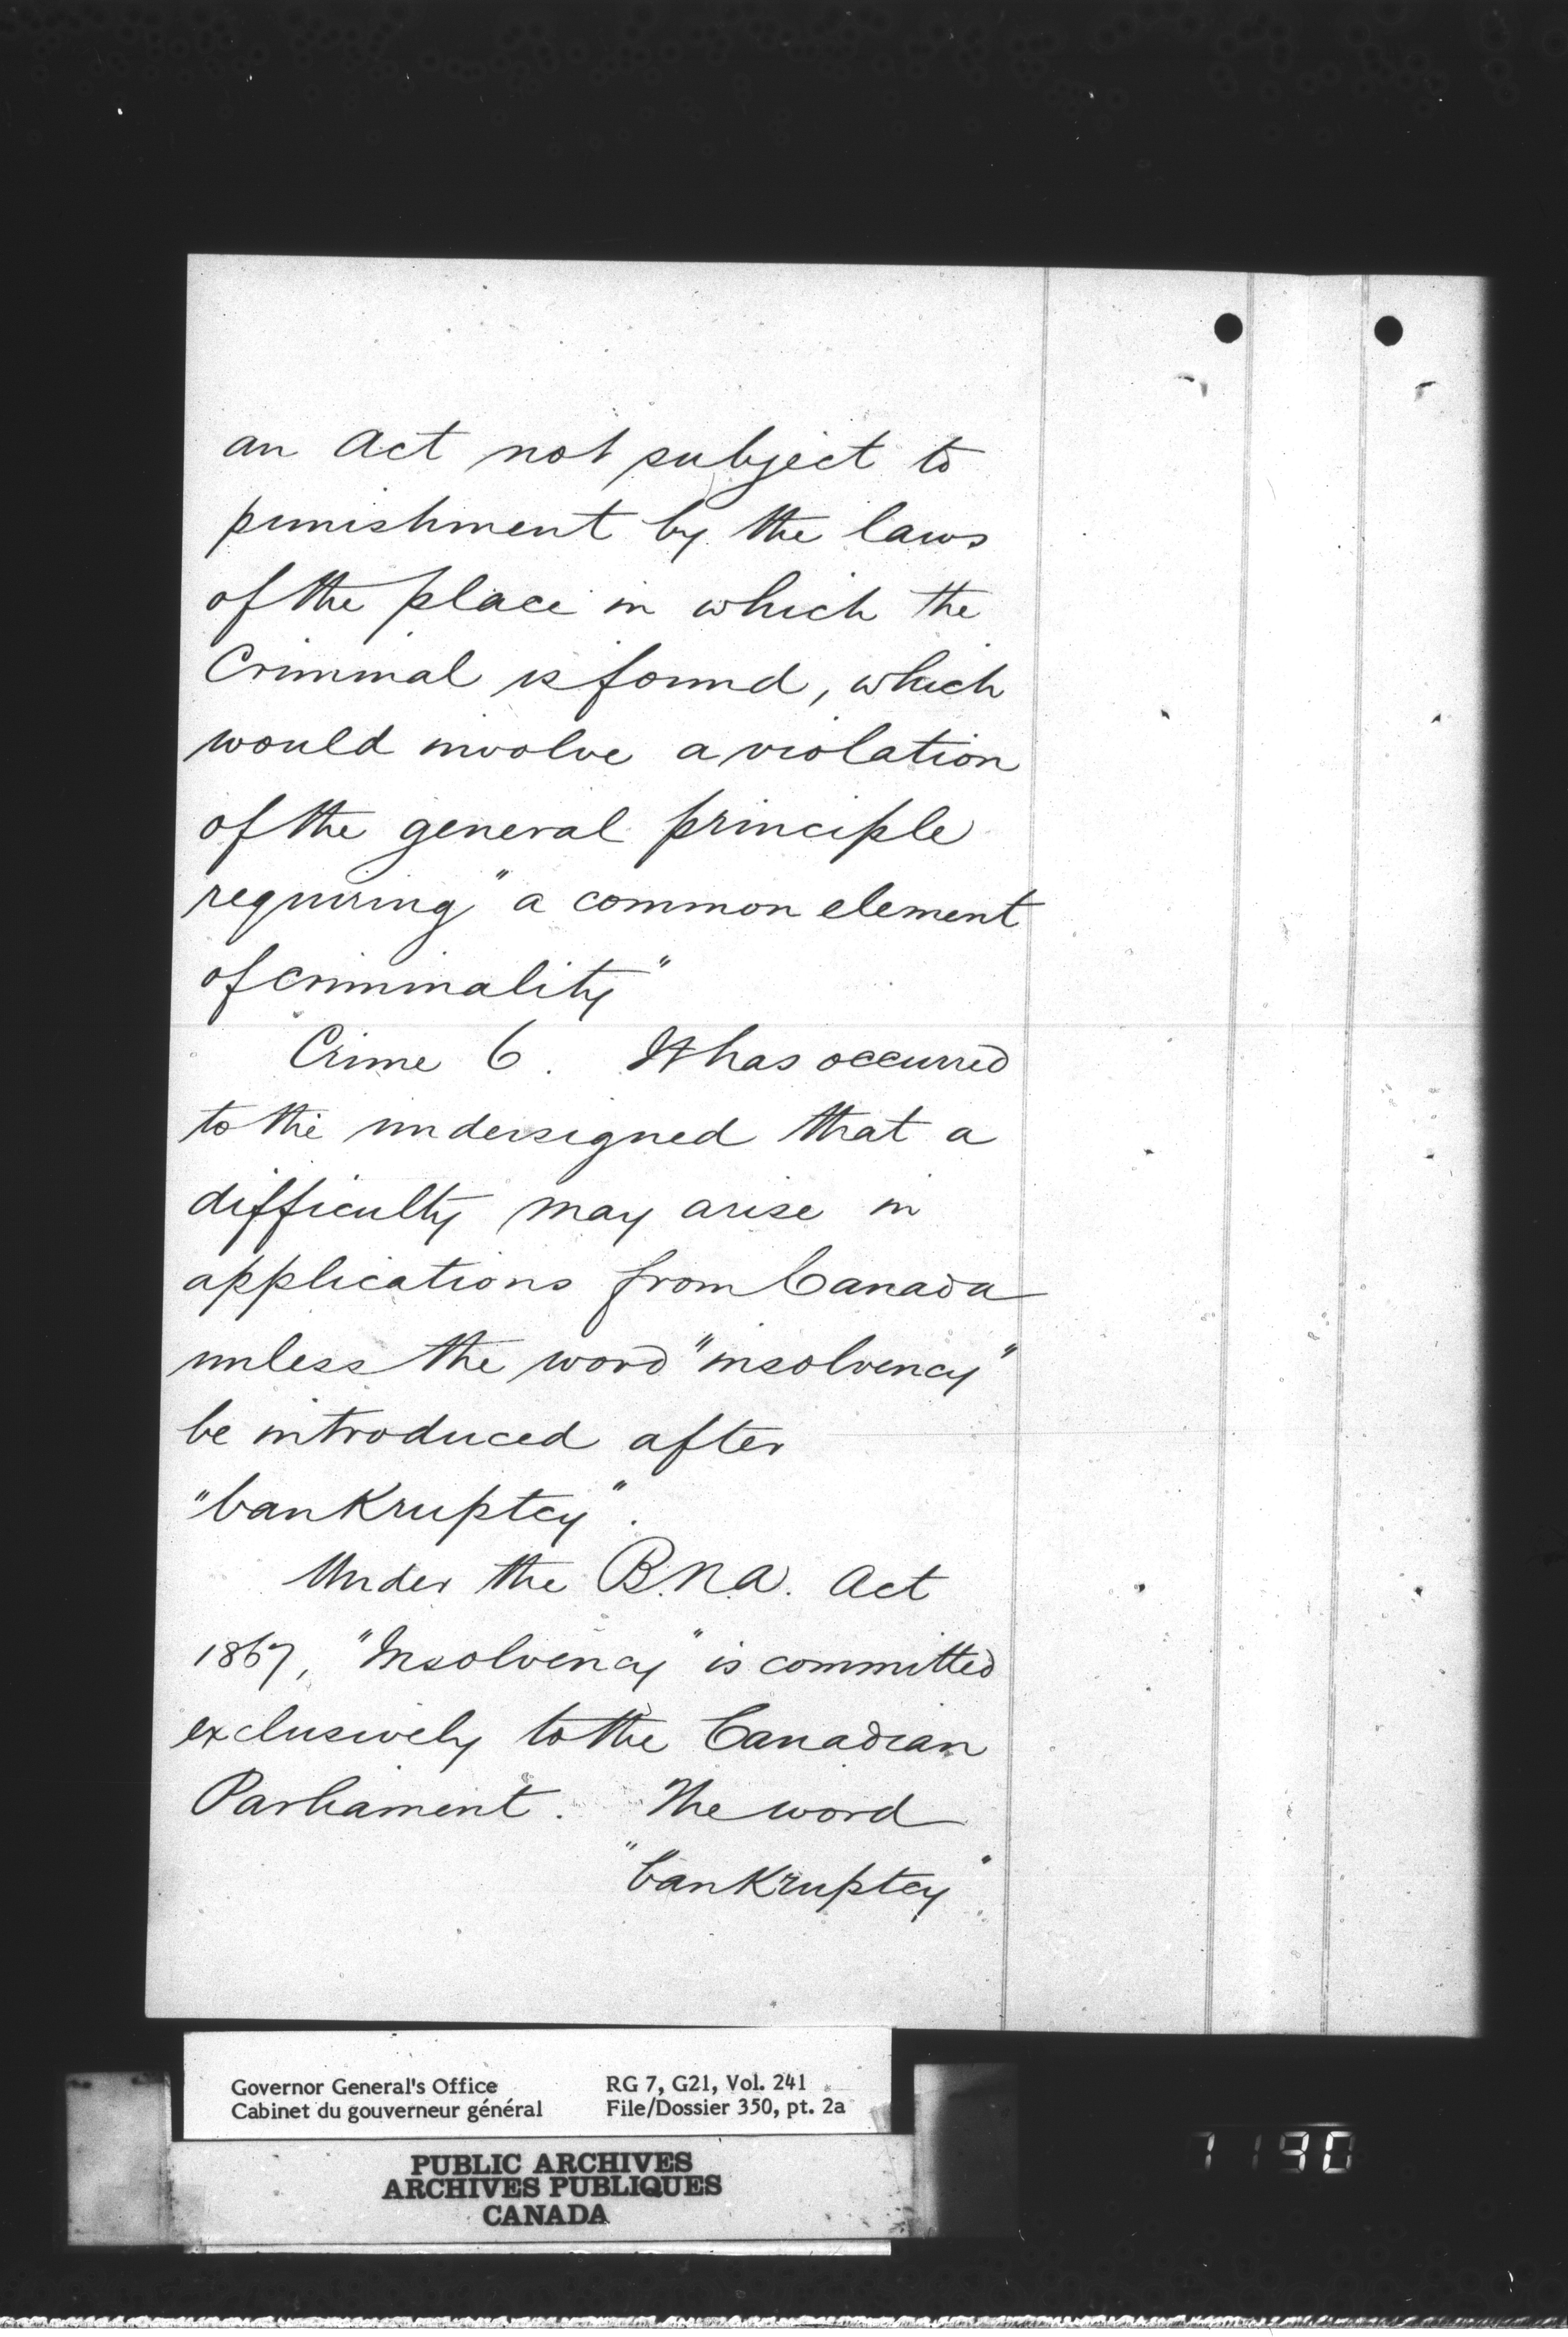 an Act not subject to
punishment by the laws
of the place in which the
Criminal is found, which
would involve a violation
of the general principle
requiring "a common element
of criminality"
Crime 6. It has occurred
to the undersigned that a
difficulty may arise in
applications from Canada
unless the word "insolvency"
be introduced after
"bankruptcy".
Under the B.N.A. Act
1867, "Insolvency" is committed
exclusively to the Canadian
Parliament. The word
"bankruptcy"
Governor General's Office RG 7, G21, Vol. 241
Cabinet du gouverneur général File/Dossier 350, pt. 2a
PUBLIC ARCHIVES
ARCHIVES PUBLIQUES
CANADA
1190